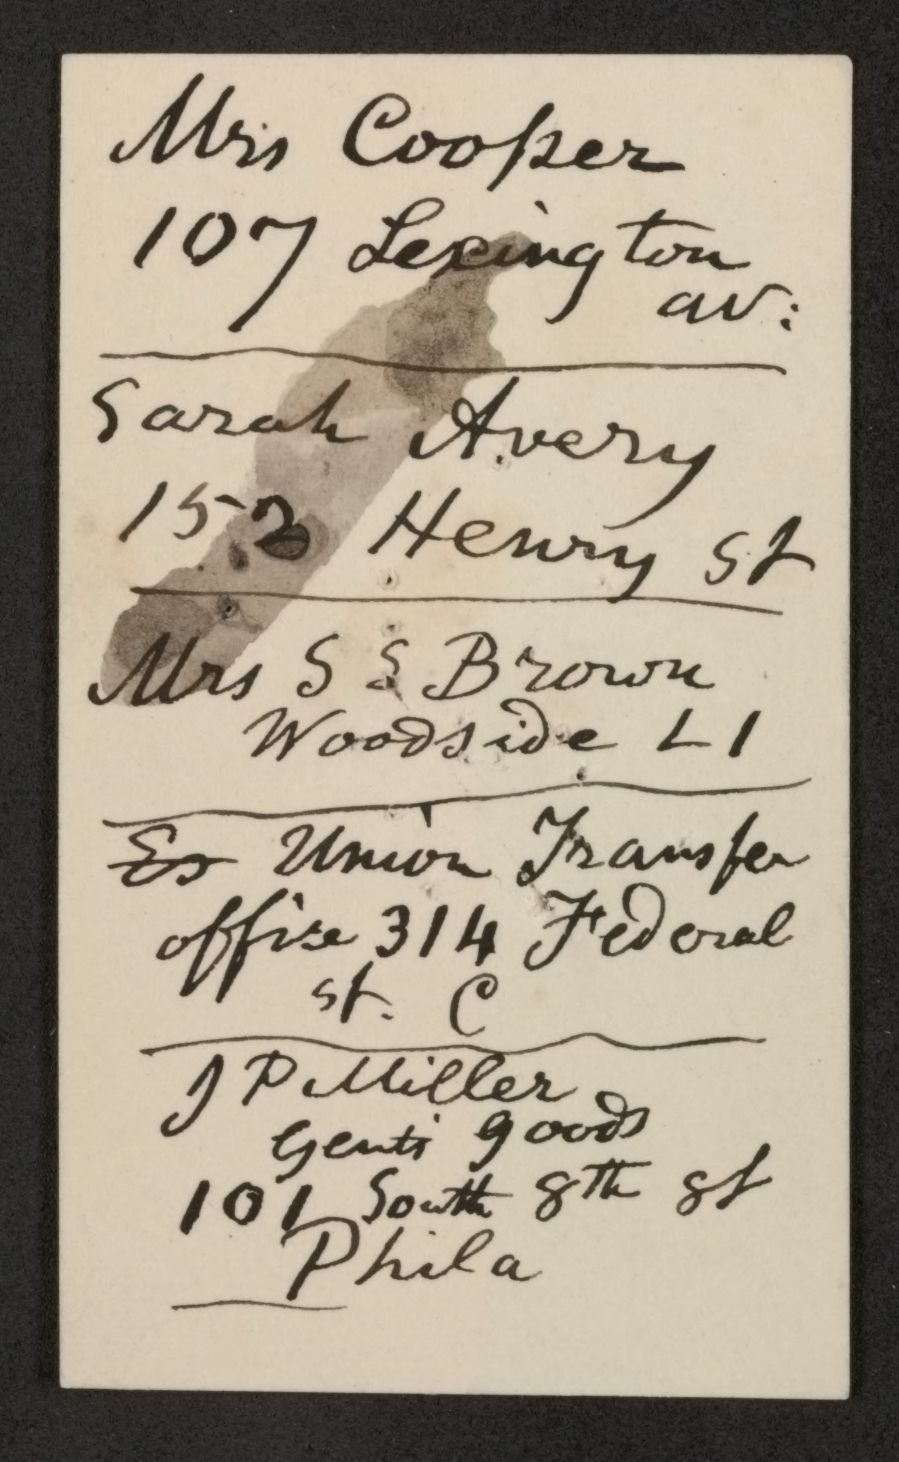 Mrs Cooper
107 Lexington
av:
Sarah Avery
152 Henry st
Mrs S S Brown
Woodside L I
Union Transfer
office 314 Federal
st. C
J P Miller
Gents goods
101 South 8th st
Phila